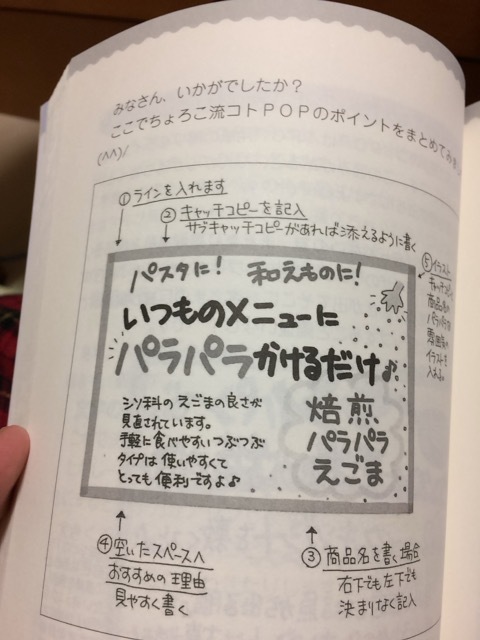 みなさん、いかがでしたか?
ここでちょろこ流コトPOPのポイントをまとめてみま
(^^)/
①ラインを入れます
②キャッチコピーを記入
サブキャッチコピーがあれば添えるように書く
パスタに! 和えものに!
いつものメニューに
パラパラかけるだけ♪
シソ科のえごまの良さが
見直されています。
手軽に食べやすいつぶつぶ
タイプは使いやすくて
とっても便利ですよ♪
焙煎
パラパラ
えごま
⑤イラスト
キャッチコピー
商品名や
パラパラする
雰囲気の
イラストを
入れる
④空いたスペースへ
おすすめの理由
見やすく書く
③商品名を書く場合
右下でも左下でも
決まりなく記入